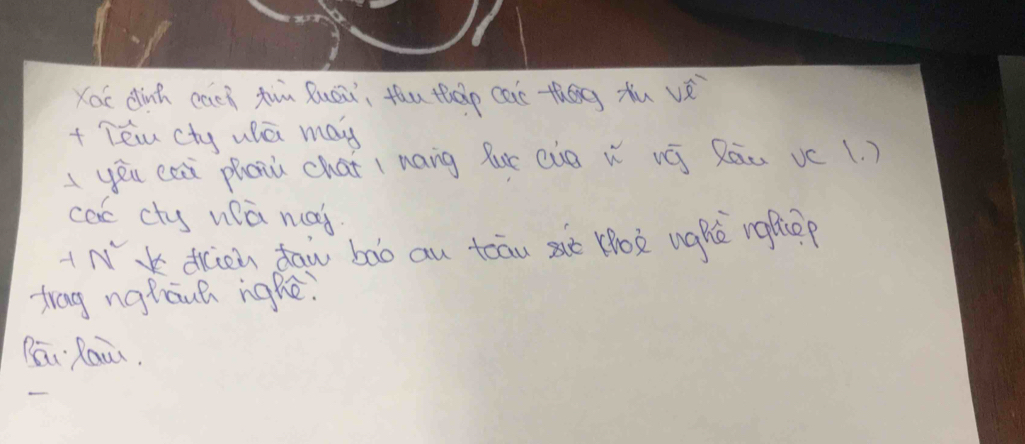 Xác định cách tìm hiểu, thu thập các thông tin về
+ Tên cty nhà máy
+ yêu cầu phẩm chất, năng lực của ~ ng làm vc (.)
các cty nhà máy.
+ N~ đk đảm bảo an toàn sức khoẻ nghề nghiệp
trong nghành nghề.
Bài làm.
-